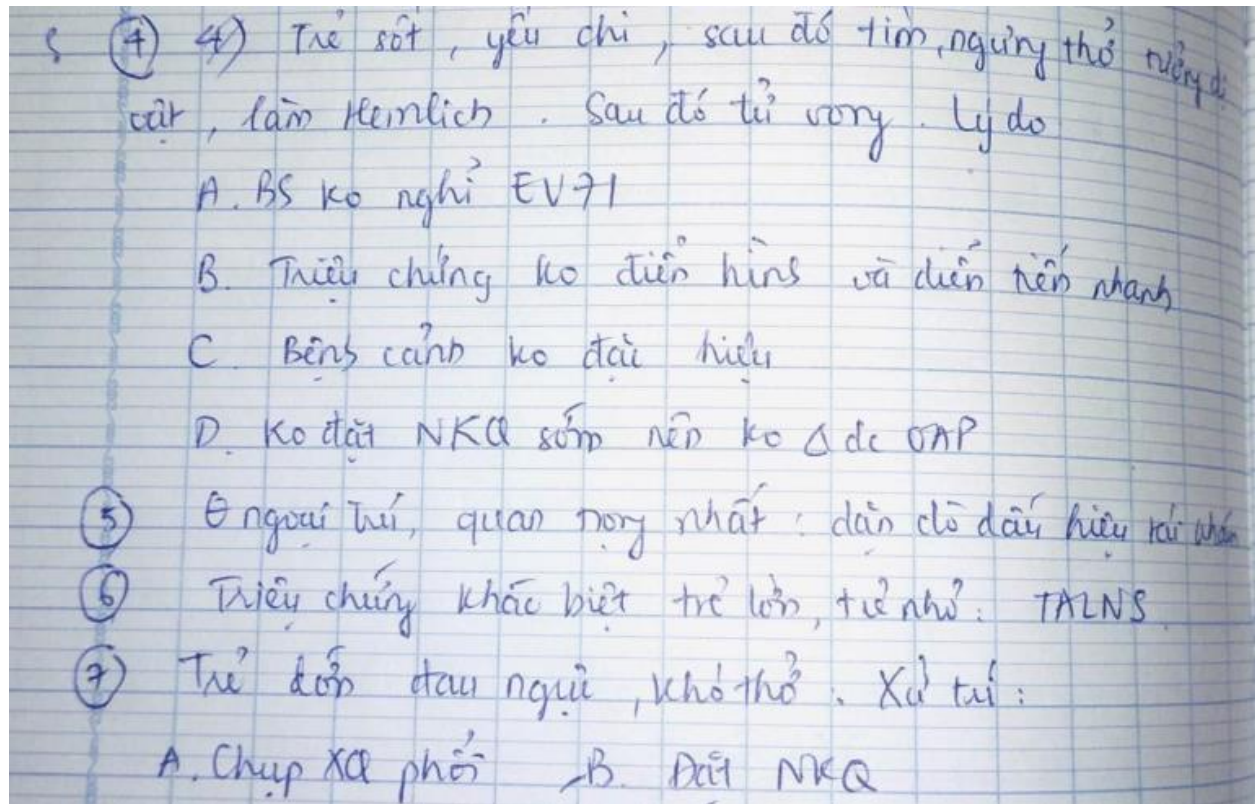 ④ 4) Trẻ sốt, yếu chi, sau đó tím, ngưng thở tưởng dị
vật, làm Hemlich. Sau đó tử vong. Lý do
A. BS ko nghỉ EV71
B. Triệu chứng ko điển hình và diển tiến nhanh
C. Bệnh cảnh ko đặc hiệu
D. Ko đặt NKQ sớm nên ko Δ dc OAP
⑤ θ ngoại trú, quan trọng nhất: dặn dò dấu hiệu tái khám
⑥ Triệu chứng khác biệt trẻ lớn, trẻ nhỏ: TALNS
⑦ Trẻ đau ngực, khó thở. Xử trí:
A. Chụp XQ phổi B. Đặt NKQ